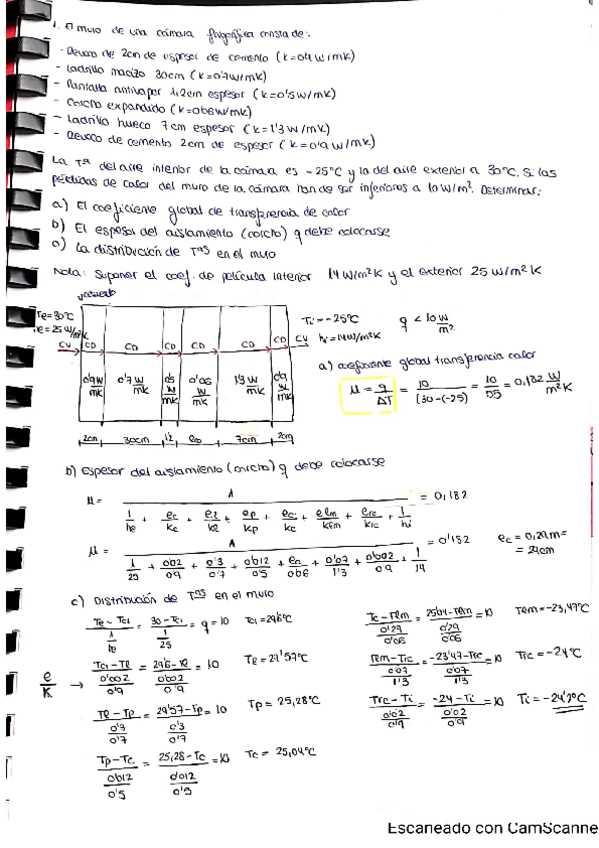 1. El muro de una cámara frigorífica consta de:
- Revoco de 2cm de espesor de cemento (k=0'9 W/mK)
- Ladrillo macizo 30cm (k=0'7W/mK)
- Pantalla antivapor 1,2cm espesor (k=0'5W/mK)
- Corcho expandido (k=0'06W/mK)
- Ladrillo hueco 7cm espesor (k=1'3 W/mK)
- Revoco de cemento 2cm de espesor (k=0'9 W/mK)
La Tª del aire interior de la cámara es -25ºC y la del aire exterior a 30ºC. Si las
pérdidas de calor del muro de la cámara han de ser inferiores a 10W/m². Determinar:
a) El coeficiente global de transferencia de calor
b) El espesor del aislamiento (corcho) q debe colocarse
c) La distribución de Tªs en el muro
Nota: Suponer el coef. de película interior 14W/m²K y el exterior 25 W/m²K
Te=30ºC
he=25W/m²K
CV CD CD CD CD CD CD CV
0'9 W/mK 0'7 W/mK 0'5 W/mK 0'06 W/mK 1'3 W/mK 0'9 W/mK
2cm 30cm 1'2 7cm 2cm
Ti=-25ºC q < 10 W/m²
hi=14W/m²K
a) coeficiente global transferencia calor
μ = q/ΔT = 10/(30-(-25)) = 10/55 = 0,182 W/m²K
b) Espesor del aislamiento (corcho) q debe colocarse
μ = 1/(1/he + ec/kc + el/kl + ep/kp + ec/kc + elm/klm + erc/krc + 1/hi) = 0,182
μ = 1/(1/25 + 0'02/0'9 + 0'3/0'7 + 0'012/0'5 + en/0'06 + 0'07/1'3 + 0'02/0'9 + 1/14) = 0'182 ec = 0,29m =
= 29cm
c) Distribución de Tªs en el muro
Te-Tc1/(1/he) = 30-Tc1/(1/25) = q = 10 Tc1=29'6ºC
Tc1-Te/(0'002/0'9) = 29'6-Te/(0'002/0'9) = 10 Te=29'57ºC
e/K →
Te-Tp/(0'3/0'7) = 29'57-Tp/(0'3/0'7) = 10 Tp = 25,28ºC
Tp-Tc/(0'012/0'5) = 25,28-Tc/(0'012/0'5) = 10 Tc = 25,04ºC
Tc-Tem/(0'29/0'06) = 25'04-Tem/(0'29/0'06) = 10 Tem=-23,47ºC
Tem-Trc/(0'07/1'3) = -23'47-Trc/(0'07/1'3) = 10 Trc = -24ºC
Trc-Ti/(0'02/0'9) = -24-Ti/(0'02/0'9) = 10 Ti = -24'2ºC
Escaneado con CamScanne